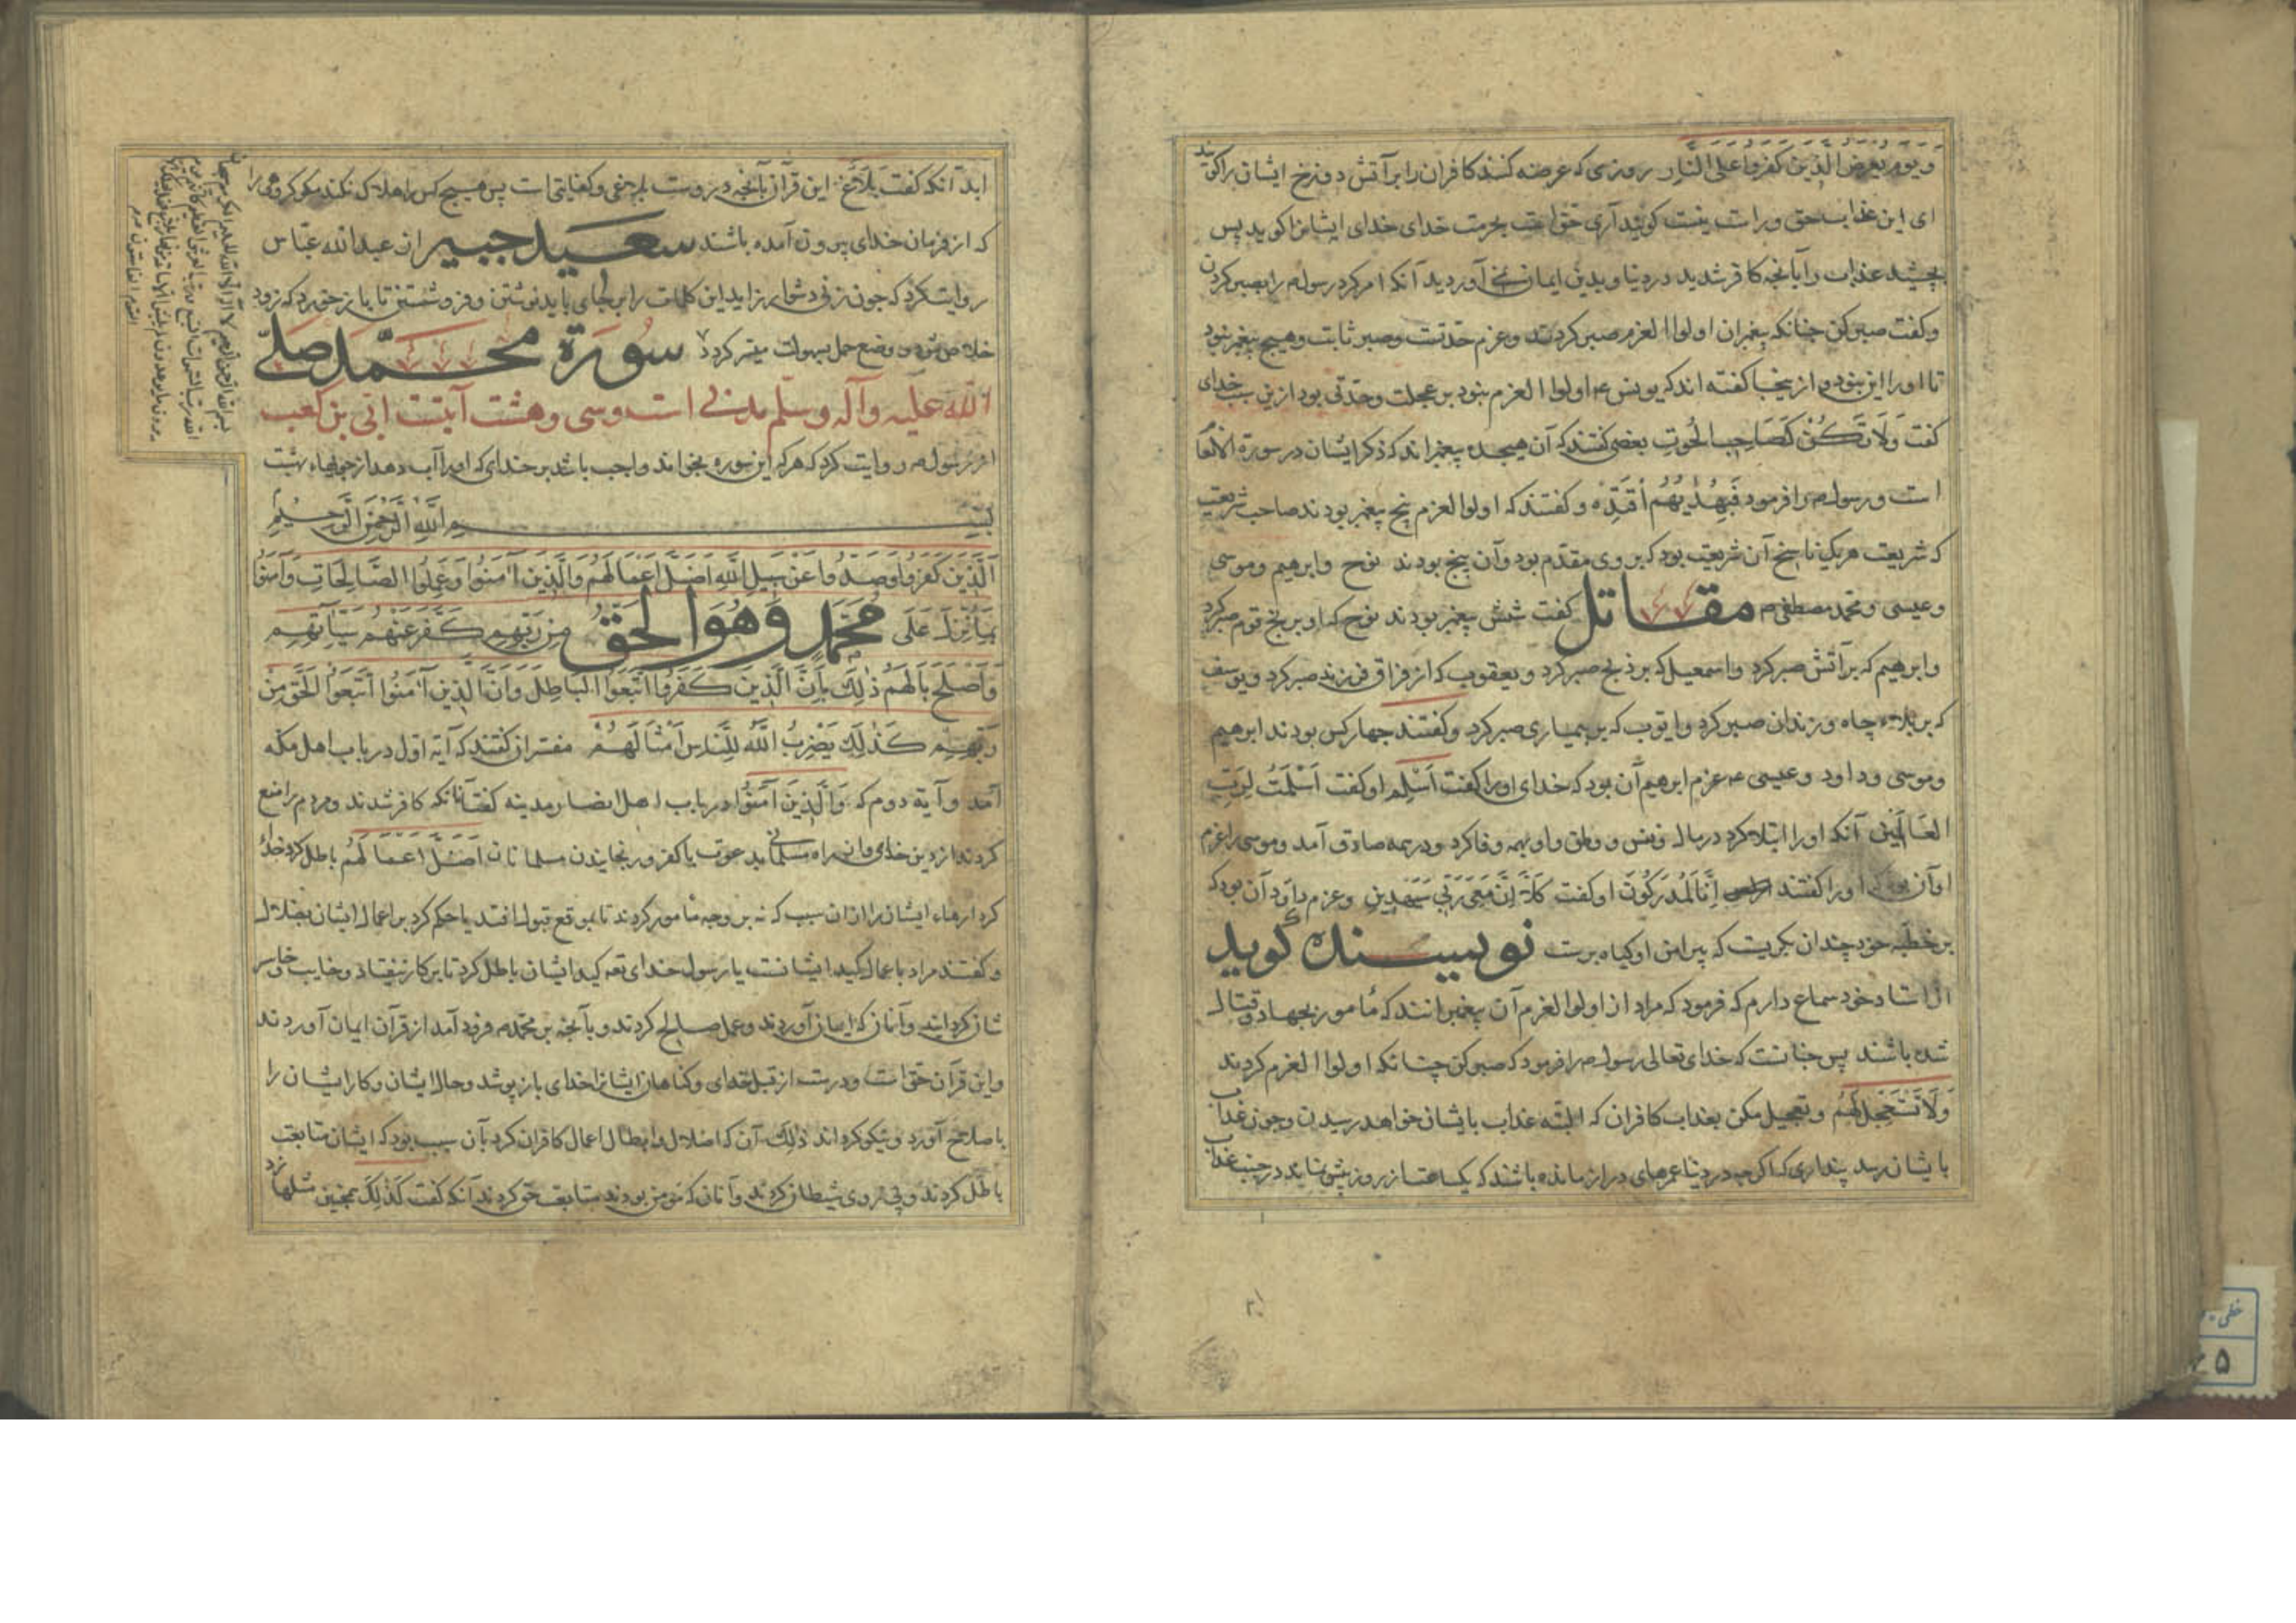 ویوم یعرض الذین کفروا علی النار روزی که عرضه کنند کافران را بر آتش دوزخ ایشان را کویند
ای این عذاب حق و راست نیست کویند آری حق است بحرمت خدای خدای ایشانرا کوید پس
بچشید عذاب را بآنچه کافر شدید در دنیا و بدین ایمان نمی آوردید آنکه امر کرد رسول را بصبر کردن
و کفت صبر کن چنانکه پیغمبران اولوا العزم صبر کردند و عزم حدتست و صبر ثابت و هیچ پیغمبر نبود
تا او را این نبود و از ینجا کفته اند که یونس ع اولوا العزم نبود بر عجلت و حدتی بود ازین سبب خدای
کفت وَلَا تَكُنْ كَصَاحِبِ الْحُوتِ بعضی کفتند که آن هیجده پیغمبراند که ذکر ایشان در سورة الانعا
است و رسول را فرمود فَبِهُدٰیهُمُ اقْتَدِهْ و کفتند که اولوا العزم پنج پیغمبر بودند صاحب شریعت
که شریعت هر یک ناسخ آن شریعت بود که بر وی مقدم بود و آن پنج بودند نوح و ابرهیم و موسی
و عیسی و محمد مصطفی م مقاتل کفت شش پیغمبر بودند نوح که او بر رنج قوم صبر کرد
و ابرهیم که بر آتش صبر کرد و اسمعیل که بر ذبح صبر کرد و یعقوب که از فراق فرزند صبر کرد و یوسف
که بر بلاء چاه و زندان صبر کرد و ایوب که بر بیماری صبر کرد و کفتند چهار کس بودند ابرهیم
و موسی و داود و عیسی ع عزم ابرهیم آن بود که خدای او را کفت اَسْلِمْ او کفت اَسْلَمْتُ لِرَبِّ
العَالَمِينَ آنکه او را ابتلا کرد در مال و نفس و وطن و او بهمه وفا کرد و در همه صادق آمد و موسی را عزم
او آن بود که او را کفتند اِنَّا لَمُدْرَكُونَ او کفت كَلَّا اِنَّ مَعِيَ رَبِّي سَيَهْدِينِ و عزم داود آن بود که
بر خطیه خود چندان بکریست که پیرامن او کیاه برست نویسنده کوید
از استاد خود سماع دارم که فرمود که مراد از اولوا العزم آن پیغمبرانند که مأمور بجهاد و قتال
شده باشند پس چنانست که خدای تعالی رسول را فرمود که صبر کن چنانکه اولوا العزم کردند
وَلَا تَسْتَعْجِلْ لَهُمْ و تعجیل مکن بعذاب کافران که البته عذاب بایشان خواهد رسیدن و چون عذاب
بایشان رسد پنداری که اکرچه در دنیا عمرهای دراز مانده باشند که یکساعت از روز بیش نماند در جنب عذاب
ابد آنکه کفت بَلَاغٌ این قرآن بآنچه دروست بلاغی و کفایتی است پس هیچ کس را هلاک نکند مکر کروهی را
که از فرمان خدای بیرون آمده باشند سعید جبیر از عبدالله عباس
روایت کرد که چون زنی دشوار زاید این کلمات را بر جای باید نوشتن و فرو شستن تا باز خورد که زود
خلاص شود و وضع حمل بسهولت میسر کردد سورة محمّد صلی
الله علیه وآله وسلم مدنی است و سی و هشت آیتست ابی بن کعب
از رسول روایت کرد که هر که این سوره بخواند واجب باشد بر خدای که او را آب دهد از جویهاء بهشت
بسم الله الرحمن الرحیم
اَلَّذِينَ كَفَرُوا وَصَدُّوا عَنْ سَبِيلِ اللّٰهِ اَضَلَّ اَعْمَالَهُمْ وَالَّذِينَ اٰمَنُوا وَعَمِلُوا الصَّالِحَاتِ وَاٰمَنُوا
بِمَا نُزِّلَ عَلَى مُحَمَّدٍ وَهُوَ الْحَقُّ مِنْ رَبِّهِمْ كَفَّرَ عَنْهُمْ سَيِّاٰتِهِمْ
وَاَصْلَحَ بَالَهُمْ ذٰلِكَ بِاَنَّ الَّذِينَ كَفَرُوا اتَّبَعُوا الْبَاطِلَ وَاَنَّ الَّذِينَ اٰمَنُوا اتَّبَعُوا الْحَقَّ مِنْ
رَبِّهِمْ كَذٰلِكَ يَضْرِبُ اللّٰهُ لِلنَّاسِ اَمْثَالَهُمْ مفسران کفتند که آیه اول در باب اهل مکه
آمد و آیة دوم که وَالَّذِينَ اٰمَنُوا در باب اهل انصار مدینه کفت آنانکه کافر شدند و مردم را منع
کردند از دین خدای و از راه مسلمانی بدعوت با کفر و رنجانیدن مسلمانان اَضَلَّ اَعْمَالَهُمْ باطل کرد خدای
کردارهاء ایشان را از ان سبب که نه بر وجه مأمور کردند تا بموقع قبول افتد یا حکم کرد بر اعمال ایشان بضلال
و کفتند مراد باعمال کید ایشانست با رسول خدای تعه کید ایشان باطل کرد تا برکار نیفتاد و خایب و خاسر
شان کردانید و آنان که ایمان آوردند و عمل صالح کردند و بآنچه بر محمد فرود آمد از قرآن ایمان آوردند
و این قرآن حق است و درست از قبل خدای و کناهان ایشانرا خدای باز پوشد و حال ایشان و کار ایشان را
باصلاح آورد و نیکو کرداند ذٰلِكَ آن که اضلال و ابطال اعمال کافران کرد بآن سبب بود که ایشان متابعت
باطل کردند و پی روی شیطان کردند و آنان که مؤمن بودند متابعت حق کردند آنکه کفت كَذٰلِكَ همچنین مثلها زد
خطی
۵